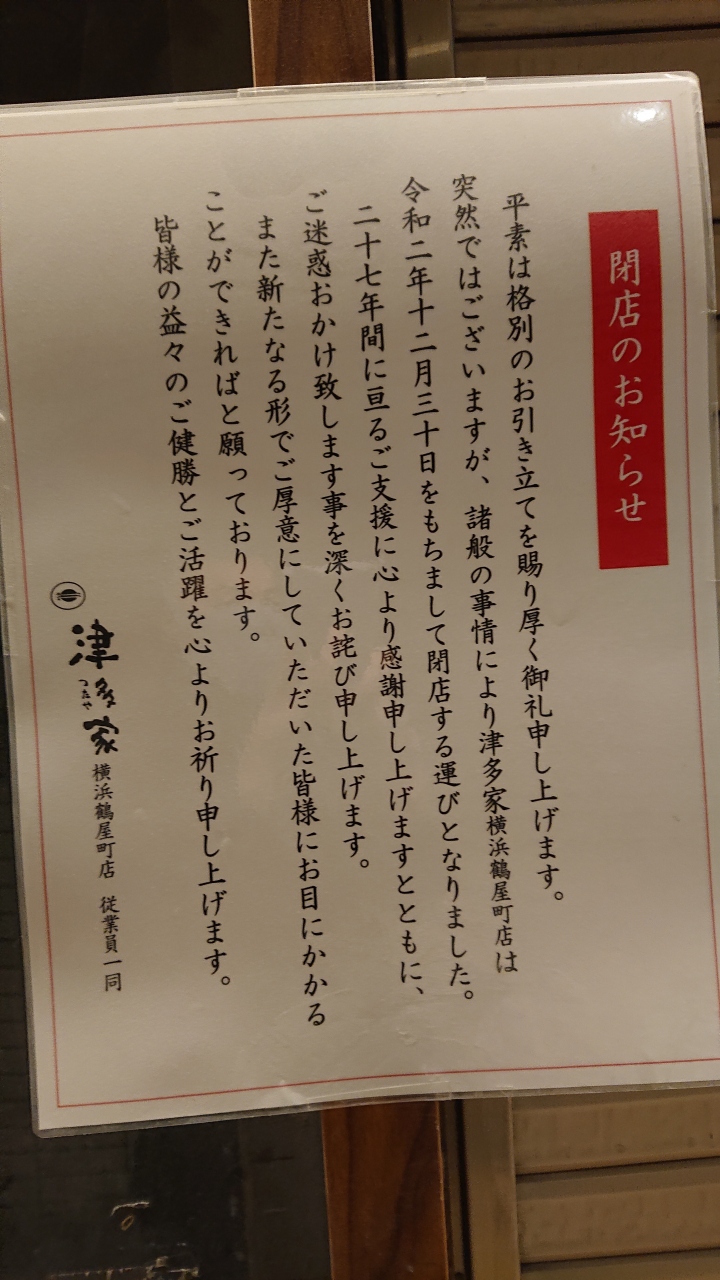 閉店のお知らせ
平素は格別のお引き立てを賜り厚く御礼申し上げます。
突然ではございますが、諸般の事情により津多家横浜鶴屋町店は
令和二年十二月三十日をもちまして閉店する運びとなりました。
二十七年間に亘るご支援に心より感謝申し上げますとともに、
ご迷惑おかけ致します事を深くお詫び申し上げます。
また新たなる形でご厚意にしていただいた皆様にお目にかかる
ことができればと願っております。
皆様の益々のご健勝とご活躍を心よりお祈り申し上げます。
津多家 つたや 横浜鶴屋町店 従業員一同